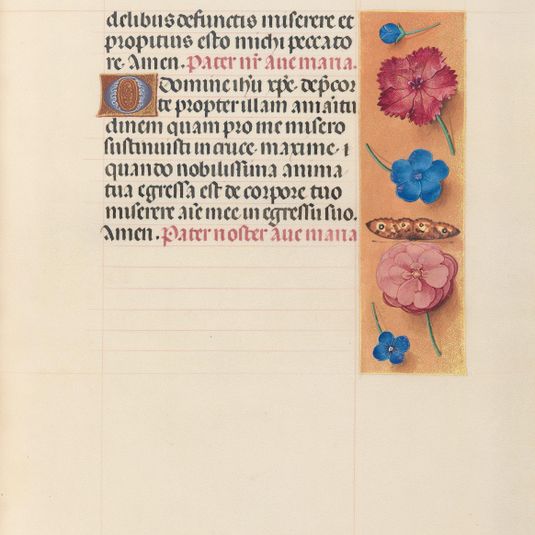 delibus defunctis miserere et
propitius esto michi peccato
re. Amen. Pater nr̄ aue maria.
O Domine ihū xp̄e. dep̄cor
te propter illam amaritu
dinem quam pro me misero
sustinuisti in cruce. maxime. i
quando nobilissima anima
tua egressa est de corpore tuo
miserere aīe mee in egressu suo.
Amen. Pater noster aue maria